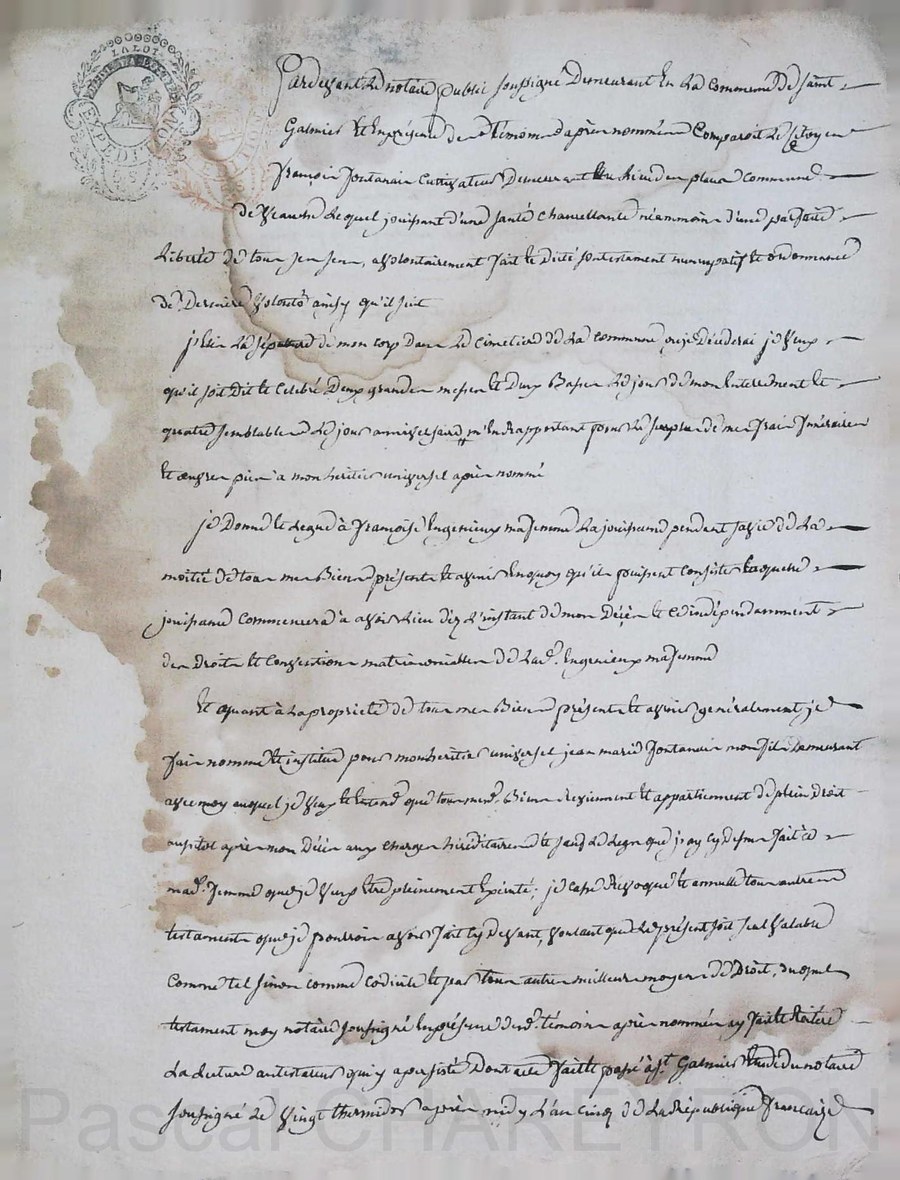 LA LOI
EXPEDITION
Pardevant le notaire public soussigné demeurant en la commune de saint
Galmier et en présence de témoins après nommés comparoit le Citoyen
françois fontanais Cultivateur demeurant au lieu des places commune
de veauche lequel jouissant d'une santé chancellante néammoins d'une parfaite
liberté de tous ses sens, a volontairement fait et dicté son testament nuncupatif et ordonnance
de dernière volonté ainsy qu'il suit
j'élis la sépulture de mon corp dans le cimetierre de la commune ou je décéderai je veux
qu'il soit dit et celebré deux grandes messes et deux basses le jour de mon enterrement et
quatre semblables le jour anniversaire m'en rapportant pour le surplus de mes frais funéraires
et œuvres pies a mon heritier universel après nommé
je donne et legue à françoise Ingenieux ma femme la jouissance pendant sa vie de la
moitié de tous mes biens présents et avenir en quoy qu'ils puissent consister laquelle
jouissance commencera à avoir lieu dez l'instant de mon décès et ce indépendamment
des droits et conventions matrimonialles de lad. Ingenieux ma femme
et quant à la propriete de tous mes biens présents et avenir généralement je
fais nomme et institue pour mon heritier universel jean marie fontanais mon fils demeurant
avec moy auquel je veux et entend que tous mesd. biens reviennent et appartiennent de plein droit
aussitot après mon décès aux charges héréditaires et sauf le legs que j'ay cy dessus fait à
mad. femme que je veux etre pleinement exécuté; je casse révoque et annulle tous autres
testaments que je pourrois avoir fait cy devant, voulant que le présent soit seul valable
comme tel sinon comme codicile et par tous autres meilleurs moyens de droit, duquel
testament moy notaire soussigné en présence desd. témoins après nommés ay fait et réitéré
la lecture au testateur qui y a persisté dont acte fait et passé à St Galmier etude du notaire
soussigné le vingt thermidor après midy l'an cinq de la République française
Pascal CHAREYRON